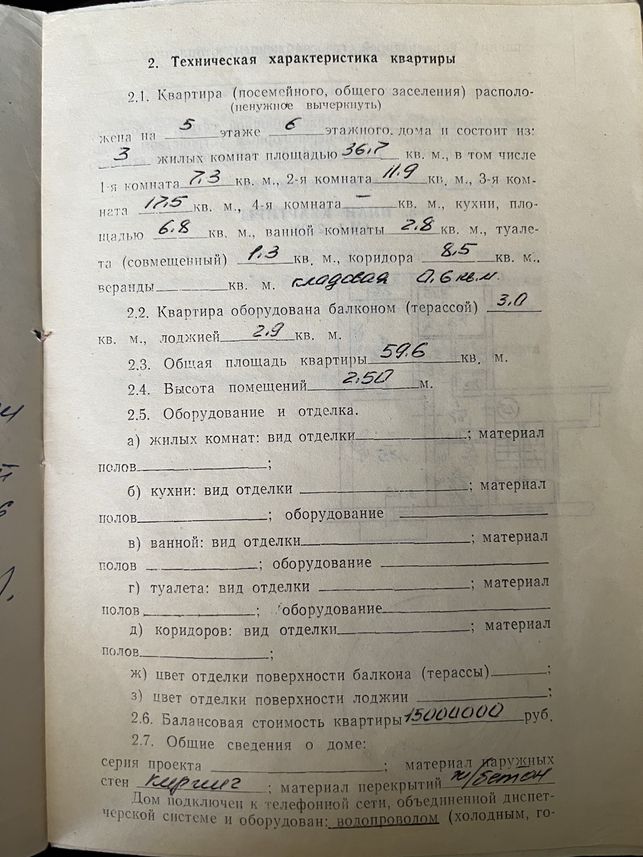 2. Техническая характеристика квартиры
2.1. Квартира (посемейного, общего заселения) располо-
(ненужное вычеркнуть)
жена на 5 этаже 6 этажного дома и состоит из:
3 жилых комнат площадью 36.7 кв. м., в том числе
1-я комната 7.3 кв. м., 2-я комната 11.9 кв. м., 3-я ком-
ната 17.5 кв. м., 4-я комната — кв. м., кухни, пло-
щадью 6.8 кв. м., ванной комнаты 2.8 кв. м., туале-
та (совмещенный) 1.3 кв. м., коридора 8.5 кв. м.,
веранды кв. м. кладовая 0.6 кв.м.
2.2. Квартира оборудована балконом (терассой) 3.0
кв. м., лоджией 2.9 кв. м.
2.3. Общая площадь квартиры 59.6 кв. м.
2.4. Высота помещений 2.50 м.
2.5. Оборудование и отделка.
а) жилых комнат: вид отделки ; материал
полов ;
б) кухни: вид отделки ; материал
полов ; оборудование
в) ванной: вид отделки ; материал
полов ; оборудование
г) туалета: вид отделки ; материал
полов ; оборудование
д) коридоров: вид отделки ; материал
полов ;
ж) цвет отделки поверхности балкона (терассы) ;
з) цвет отделки поверхности лоджии ;
2.6. Балансовая стоимость квартиры 15000000 руб.
2.7. Общие сведения о доме:
серия проекта ; материал наружных
стен ; материал перекрытий ж/бетон
Дом подключен к телефонной сети, объединенной диспет-
черской системе и оборудован: водопроводом (холодным, го-